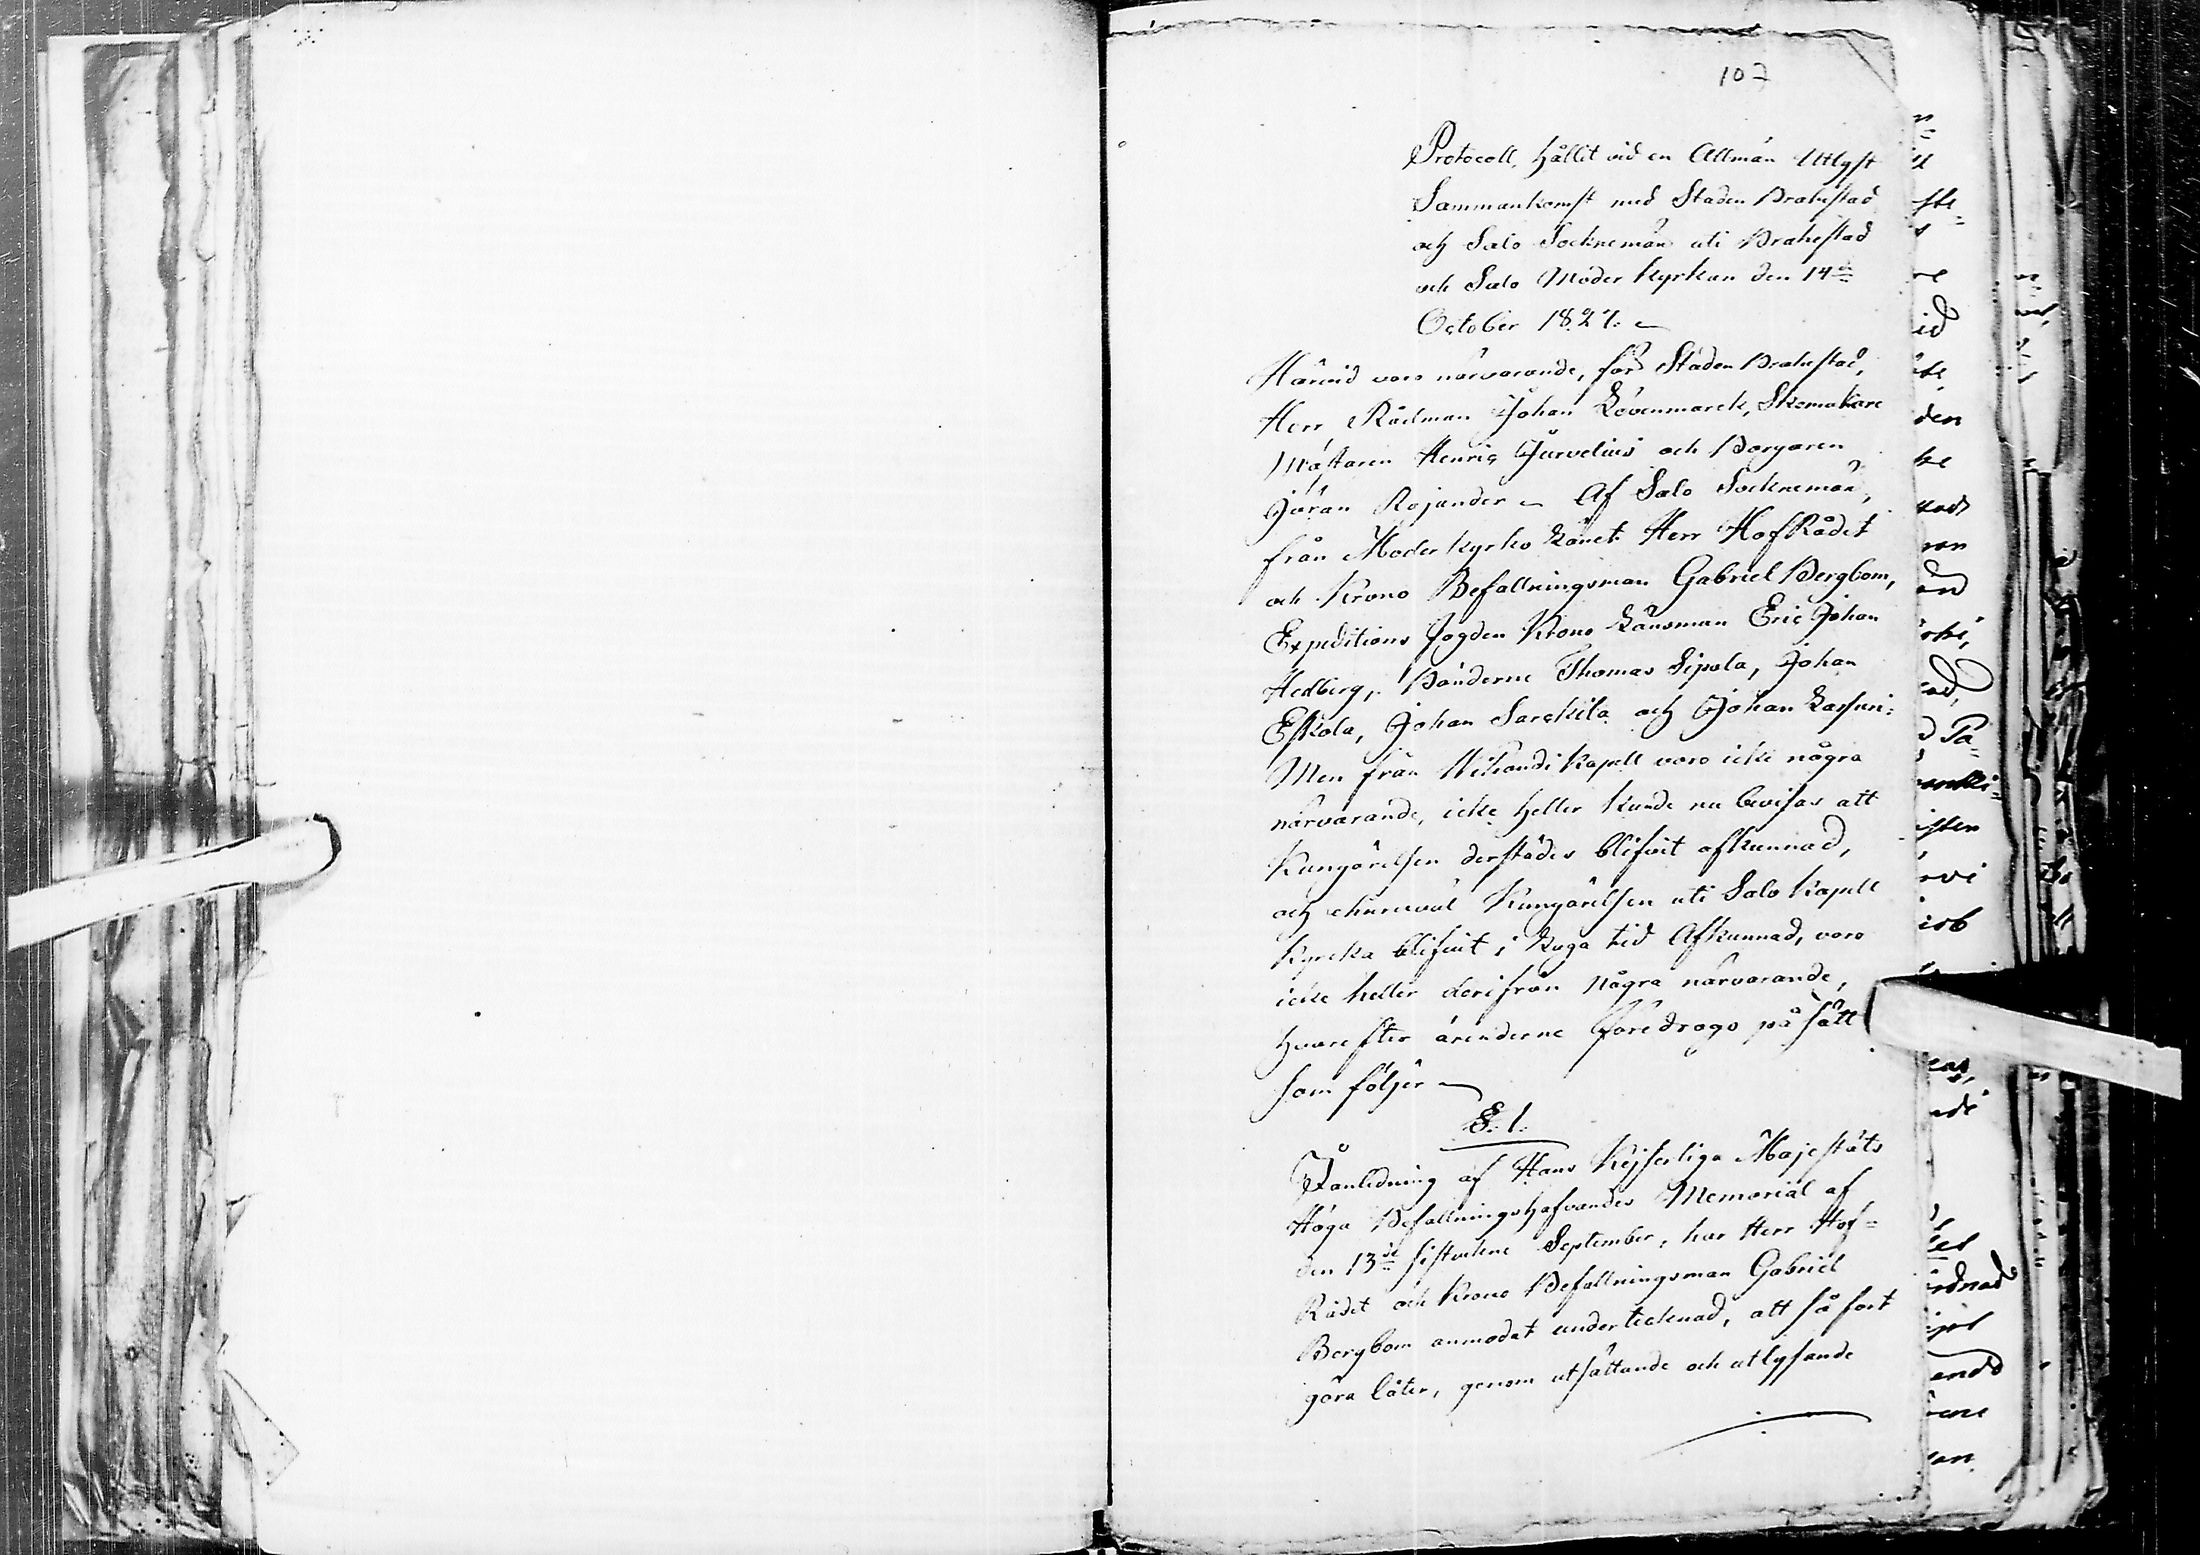 107
Protocoll, hållit vid en Allmän Utlyst
Sammankomst med Staden Brahestad
och Salo Socknemän uti Brahestad
och Salo Moder Kyrkan den 14de
October 1827.
Härvid voro närvarande, för Staden Brahestad,
Herr Rådman Johan Lövenmarck, Skomakare
Mästaren Henric Jurvelius och Borgaren
Jöran Rojander Af Salo Socknemän,
från Moderkyrko Länet Herr HofRådet
och Krono Befallningsman Gabriel Bergbom,
Expeditions Fogden Krono Länsman Eric Johan
Hedberg, Bönderne Thomas Sipola, Johan
Eskola, Johan Sarckila och Johan Lassuri:
Men från Wihandi Kapell voro icke några
närvarande, icke heller kunde nu bevisas att
Kungörelsen derstädes blifvit afkunnad,
och ehuruväl Kungörelsen uti Salo Kapell
Kyrcka blifvit i laga tid Afkunnad, voro
icke heller derifrån några närvarande,
hvarefter ärenderne föredrogs på sätt
som följer
§. 1.
I anledning af Hans Kejserliga Majestäts
Höga Befallningshafvandes Memorial af
den 13de sistvekne September, har Herr Hof=
Rådet och Krono Befallningsman Gabriel
Bergbom anmodat undertecknad, att så fort
göra låter, genom utsättande och utlysande